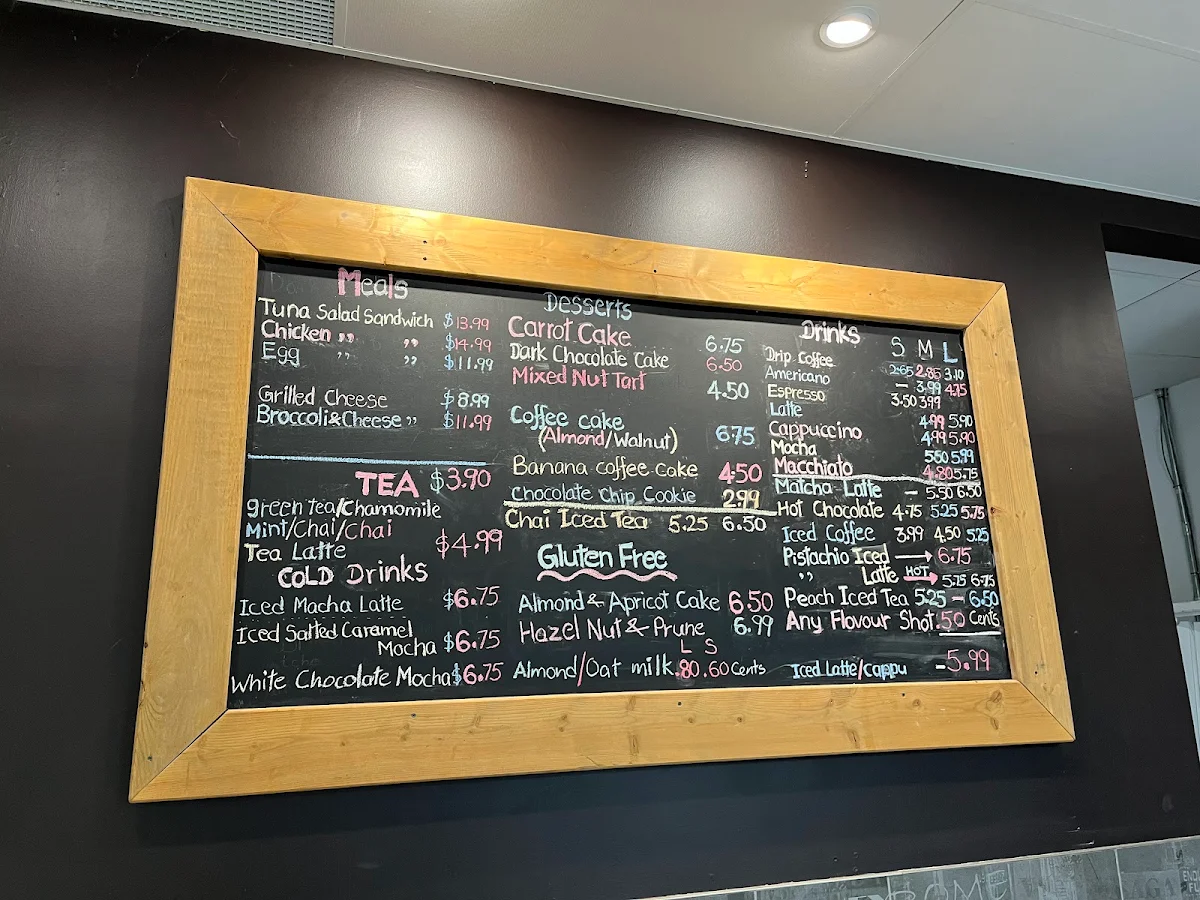 Meals
Tuna Salad Sandwich $13.99
Chicken " " $14.99
Egg " " $11.99
Grilled Cheese $8.99
Broccoli&Cheese " $11.99
TEA $3.90
green tea/Chamomile
Mint/Chai/Chai
Tea Latte $4.99
COLD Drinks
Iced Macha Latte $6.75
Iced Salted Caramel
Mocha $6.75
White Chocolate Mocha $6.75
Desserts
Carrot Cake 6.75
Dark Chocolate Cake 6.50
Mixed Nut Tart 4.50
Coffee cake
(Almond/Walnut) 675
Banana coffee cake 4.50
Chocolate Chip Cookie 2.99
Chai Iced Tea 5.25 6.50
Gluten Free
Almond & Apricot Cake 6.50
Hazel Nut & Prune 6.99
L S
Almond/Oat milk .80 .60 Cents
Drinks S M L
Drip Coffee 2.65 2.85 3.10
Americano – 3.99 4.75
Espresso 3.50 3.99
Latte 4.99 5.90
Cappuccino 4.99 5.90
Mocha 5.50 5.99
Macchiato 4.80 5.75
Matcha Latte – 5.50 6.50
Hot Chocolate 4.75 5.25 5.75
Iced Coffee 3.99 4.50 5.25
Pistachio Iced → 6.75
" Latte HOT → 5.75 6.75
Peach Iced Tea 5.25 – 6.50
Any Flavour Shot .50 Cents
Iced Latte/Cappu -5.99